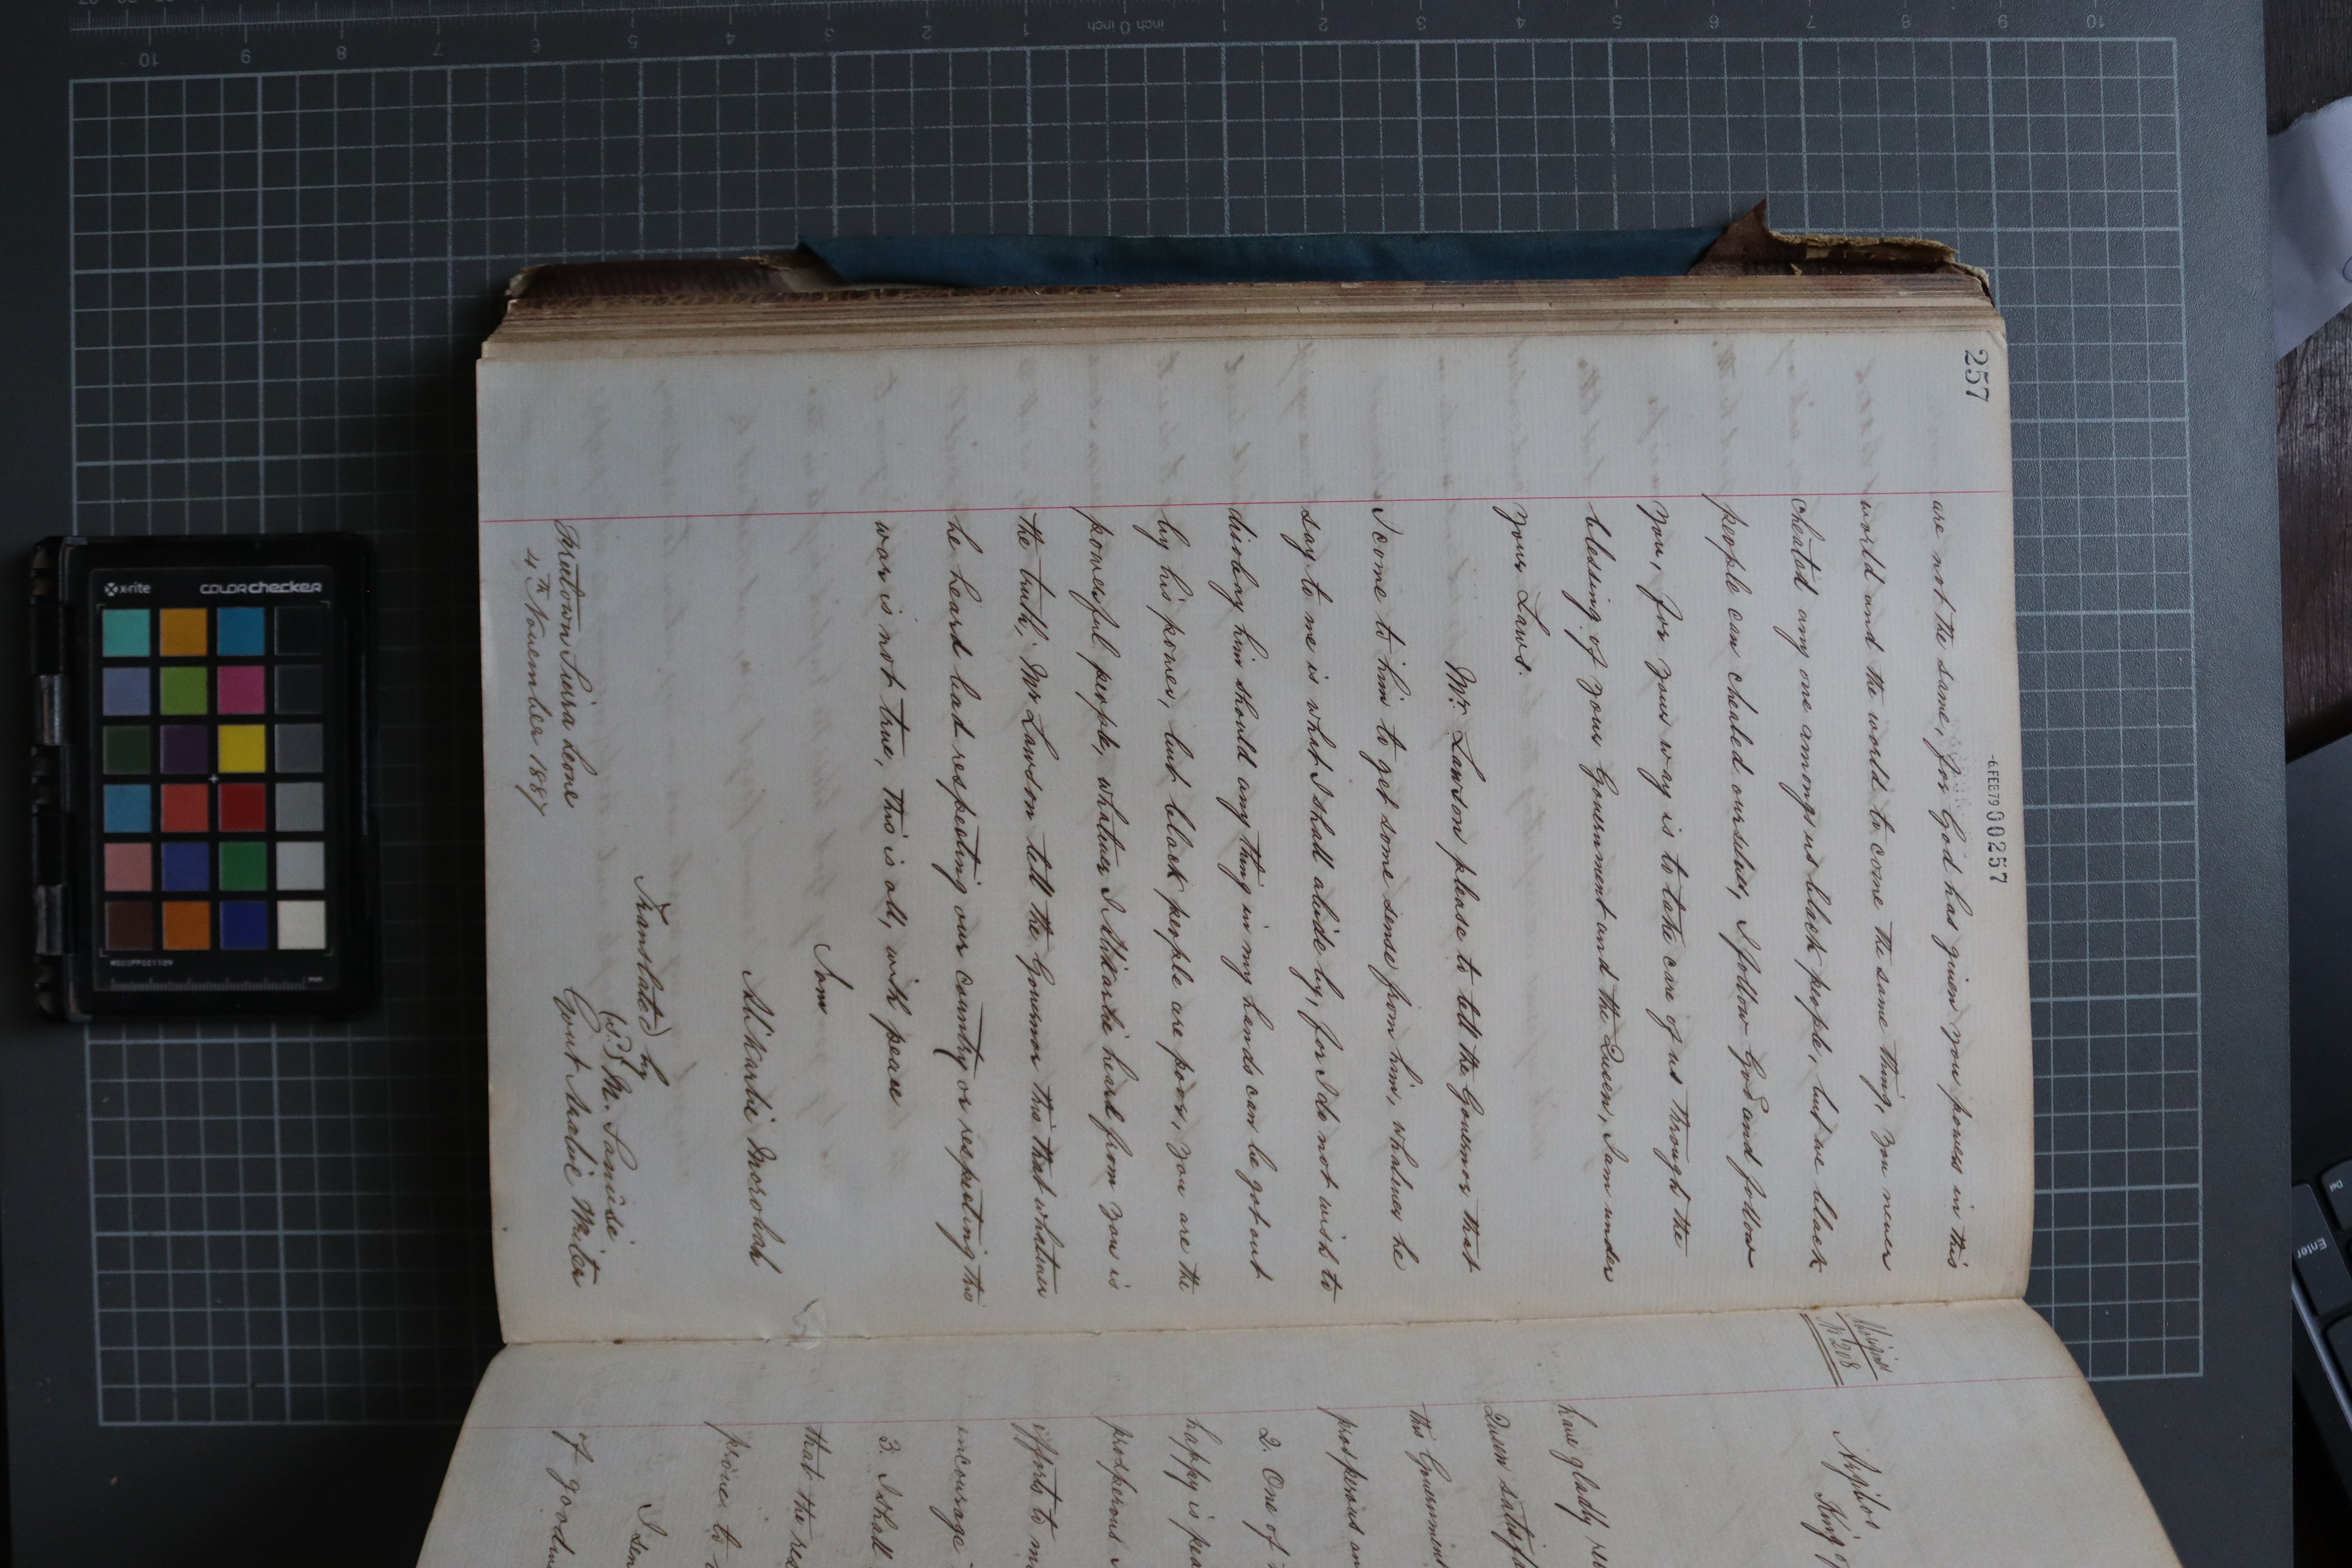 257
-6 FEB 79 000257
are not the same, for God has given you power in this
world and the world to come the same thing, you never
cheated any one amongs us black people, but we black
people can cheated ourselves, I follow God and follow
you, for your way is to take care of us through the
blessing of your Government and the Queen, I am under
your Laws.
Mr. Lawson please to tell the Governor that
I come to him to get some sense from him, whatever he
say to me is what I shall abide by, for I do not wish to
disobey him should any thing in my hands can be got out
by his power, but black people are poor, you are the
powerful people, whatever I Alikarlie heard from you is
the truth, Mr Lawson tell the Governor this that whatever
he heard least respecting our country or respecting this
war is not true, this is all, with peace
I am
Alikarlie Morohah
Translated by
M. Sanusi
Govt Arabic Writer
Freetown Sierra Leone
4th November 1887
No 208
King
have gladly
Queen
this Government
prosperous
2. One of
happy is
prosperous
efforts to
encourage
3. I shall
that the
prove to
I
of
x-rite
colorchecker
mm
10 9 8 7 6 5 4 3 2 1 inch 0 inch 1 2 3 4 5 6 7 8 9 10
Enter
Del